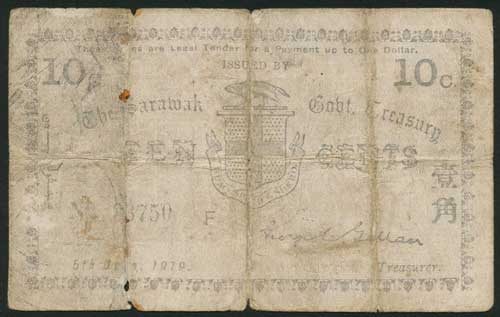 These Notes are Legal Tender for a Payment up to One Dollar.
ISSUED BY
10 10c
The Sarawak Govt. Treasury
TEN CENTS
壹
角
3750 F
1919.
Treasurer.